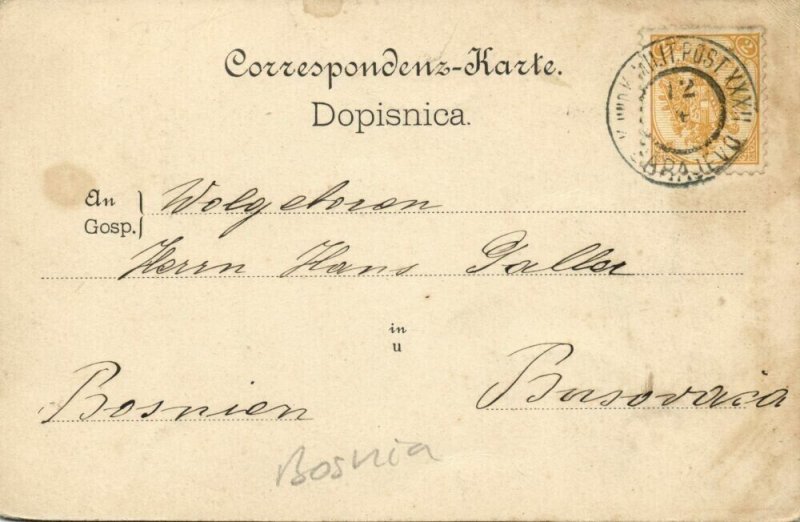 Correspondenz-Karte.
Dopisnica.
K. UND K. MILIT. POST XXXII
12
SARAJEVO
2
An
Gosp.
Wolgeboren
Herrn Hans
in
u
Bosnien
Busovača
Bosnia